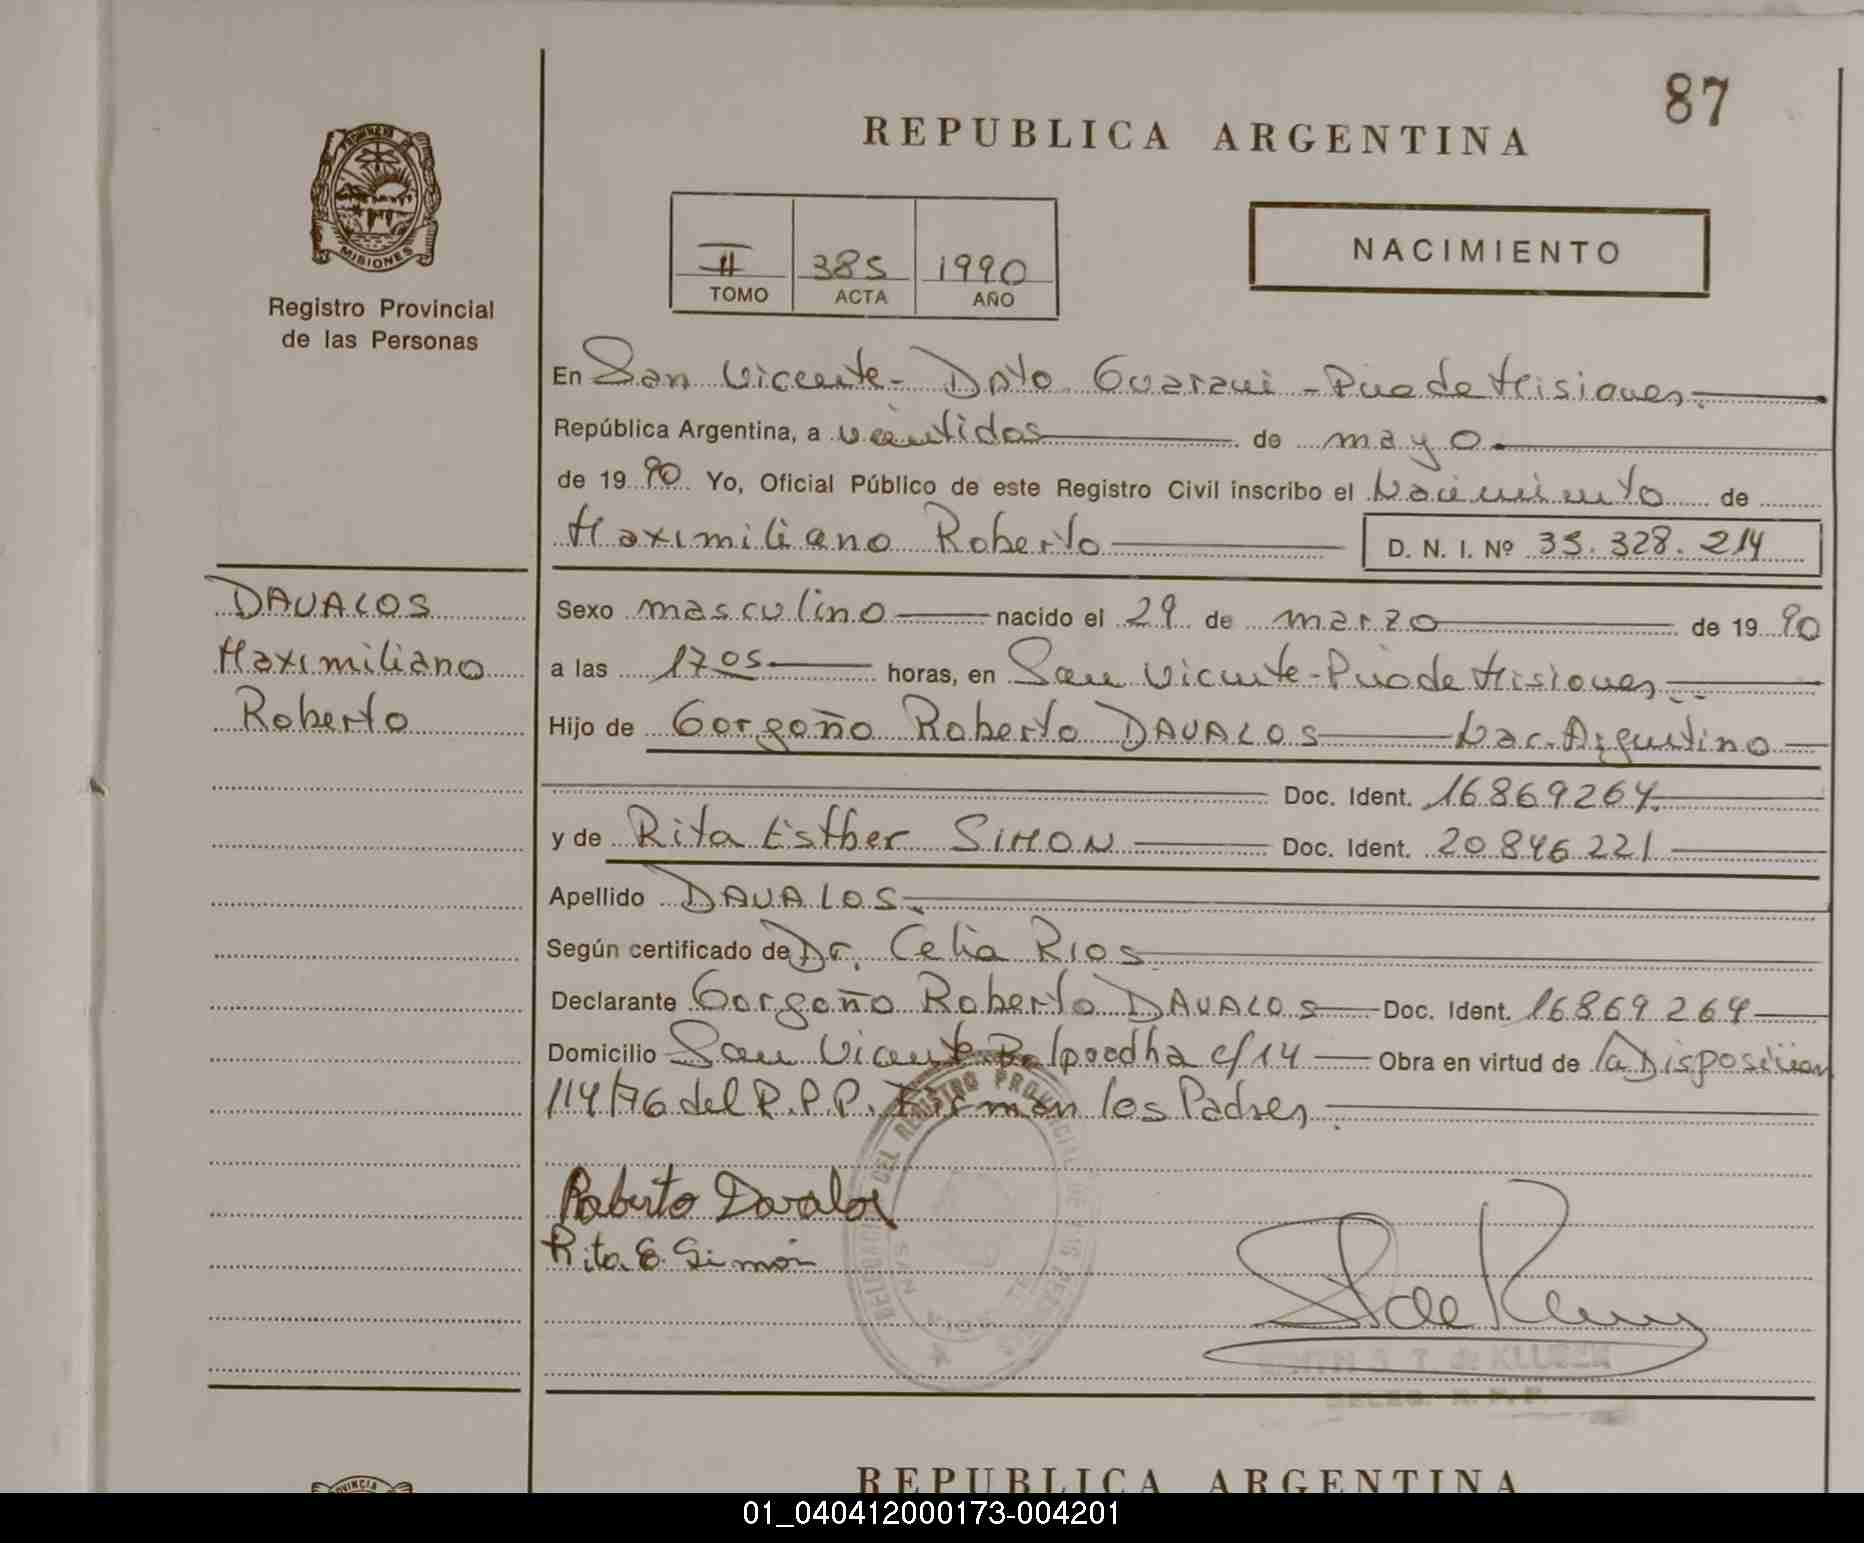 87
REPUBLICA ARGENTINA
PROVINCIA DE
MISIONES
Registro Provincial
de las Personas
II 385 1990
TOMO ACTA AÑO
NACIMIENTO
En San Vicente - Dpto Guarani - Pciade Misiones.
República Argentina, a veintidos de mayo
de 1990 Yo, Oficial Público de este Registro Civil inscribo el Nacimiento de
Maximiliano Roberto D. N. I. Nº 35.328.214
DAVALOS
Maximiliano
Roberto
Sexo masculino nacido el 29 de marzo de 1990
a las 17 05 horas, en San Vicente - Pciade Misiones
Hijo de Gorgoño Roberto DAVALOS Nac. Argentino
Doc. Ident. 16869264
y de Rita Esther SIMON Doc. Ident. 20846221
Apellido DAVALOS
Según certificado de Dr. Celia Rios
Declarante Gorgoño Roberto DAVALOS Doc. Ident. 16869264
Domicilio San Vicente c/14 Obra en virtud de la Disposicion
114/76 del R.P.P. Firman los Padres
Roberto Davalos
Rita E. Simón
DEL REGISTRO PROVINCIAL DE LAS
S. T. de KLUSEN
DELEG. R. P. P.
REPUBLICA ARGENTINA
01_040412000173-004201